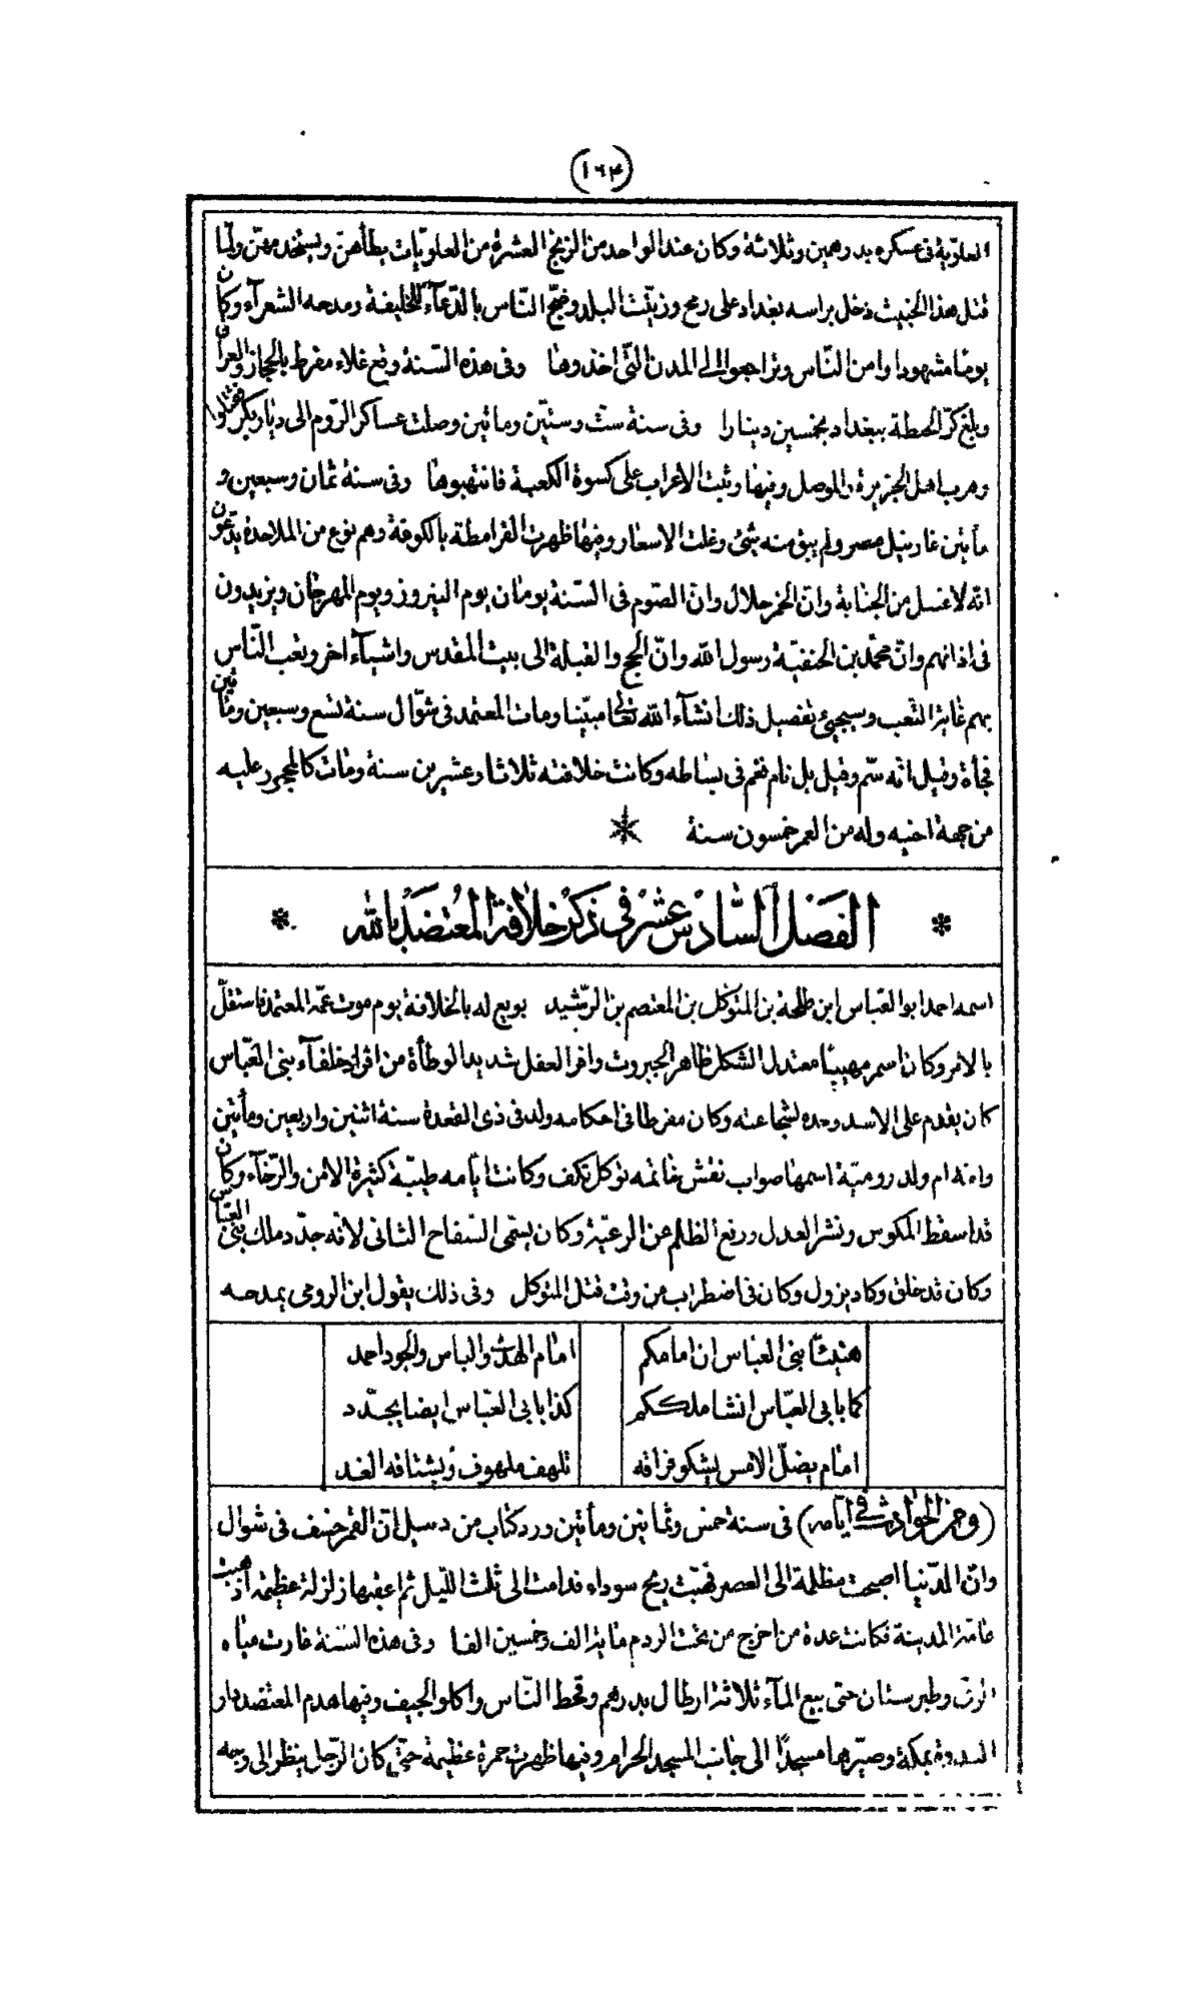 (١٦٤)
العلويّة فى عسكره بدرهمين وثلاثة وكان عند الواحد من الزنج العشرة من العلويّات يطأهنّ ويستخدمهنّ ولمّا
قتل هذا الخبيث دخل براسه بغداد على رمح وزيّنت البلد وضجّ النّاس بالدّعآء للخليفة ومدحه الشعرآء وكان
يومًا مشهودا وامن النّاس وتراجعوا الى المدن الّتى اخذوها وفى هذه السّنة وقع غلاء مفرط بالحجاز والعراق
وبلغ كرّ الحنطة ببغداد بخمسين دينارا وفى سنة ستّ وستّين ومائتين وصلت عساكر الرّوم الى ديار بكر فقتلوا
وهرب اهل الجزيرة والموصل وفيها وثبت الاعراب على كسوة الكعبة فانتهبوها وفى سنة ثمان وسبعين و
مأتين غار نيل مصر ولم يبق منه شئ وغلت الاسعار وفيها ظهرت القرامطة بالكوفة وهم نوع من الملاحدة يدّعون
انّه لا غسل من الجنابة وانّ الخمر حلال وانّ الصّوم فى السّنة يومان يوم النيروز ويوم المهرجان ويزيدون
فى اذانهم وانّ محمّد بن الحنفيّة رسول اللّه وانّ الحجّ والقبلة الى بيت المقدس واشيآء اخر وتعب النّاس
بهم غاية التعب وسيجيئ تفصيل ذلك انشآء اللّه تعالى مبيّنا ومات المعتمد فى شوّال سنة تسع وسبعين ومأتين
فجأة وقيل انّه سمّ وقيل بل نام فغم فى بساطه وكانت خلافته ثلاثا وعشرين سنة ومات كالمحجور عليه
من جهة اخيه وله من العمر خمسون سنة *
* الفصل السّادس عشر فى ذكر خلافة المعتضد باللّه *
اسمه احمد ابو العبّاس ابن طلحة بن المتوكّل بن المعتصم بن الرّشيد بويع له بالخلافة يوم موت عمّه المعتمد فاستقلّ
بالامر وكان اسمر مهيبًا معتدل الشكل ظاهر الجبروت وافر العقل شديد الوطأة من افراد خلفآء بنى العبّاس
كان يقدم على الاسد وحده لشجاعته وكان مفرطا فى احكامه ولد فى ذى القعدة سنة اثنين واربعين ومأتين
وامّه ام ولد روميّة اسمها صواب نقش خاتمه توكل تكف وكانت ايّامه طيّبة كثيرة الامن والرّخآء وكان
قد اسقط المكوس ونشر العدل ورفع الظلم عن الرعيّة وكان يسمّى السّفاح الثانى لانّه جدّد ملك بنى العبّاس
وكان قد خلق وكاد يزول وكان فى اضطراب من وقت قتل المتوكل وفى ذلك يقول ابن الرومى يمدحه
هنيئًا بنى العباس ان امامكم امام الهدى والباس والجود احمد
كما بابى العبّاس انشا ملككم كذا بابى العبّاس ايضا يجدّد
امام يضلّ الامس يشكو فراقه تلهف ملهوف ويشتاقه الغد
(ومن الحوادث فى ايّامه) فى سنة خمس وثمانين ومأتين ورد كتاب من دبيل انّ القمر خسف فى شوال
وانّ الدّنيا اصبحت مظلمة الى العصر فهبّت ريح سوداء فدامت الى ثلث اللّيل ثم اعقبها زلزلة عظيمة اذهبت
عامّة المدينة فكانت عدة من اخرج من تحت الردم مائة الف وخمسين الفا وفى هذه السّنة غارت مياه
الرىّ وطبرستان حتى بيع المآء ثلاثة ارطال بدرهم وقحط النّاس واكلوا الجيف وفيها هدم المعتضد دار
الندوة بمكة وصيّرها مسجدًا الى جانب المسجد الحرام وفيها ظهرت حمرة عظيمة حتى كان الرّجل ينظر الى وجه